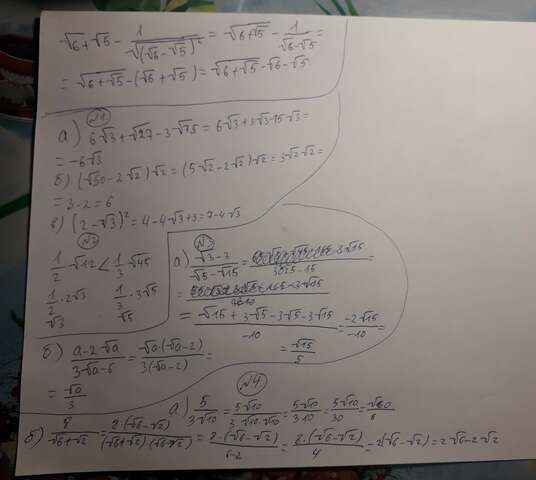 √6+√5 - 1/√(√6-√5)² = √6+√5 - 1/√6-√5 =
= √6+√5 - (√6+√5) = √6+√5 - √6 - √5
№1
а) 6√3+√27-3√75 = 6√3+3√3-15√3 =
= -6√3
б) (√50-2√2)√2 = (5√2-2√2)√2 = 3√2√2 =
= 3·2 = 6
в) (2-√3)² = 4-4√3+3 = 7-4√3
№2
1/2 √12 < 1/3 √45
1/2 · 2√3 1/3 · 3√5
√3 √5
№3
а) √3-3/√5-√15 =
= √15+3√5-3√5-3√15/-10 = -2√15/-10 =
= √15/5
б) a-2√a/3√a-6 = √a(√a-2)/3(√a-2) =
= √a/3
№4
а) 5/3√10 = 5√10/3·√10·√10 = 5√10/3·10 = 5√10/30 = √10/6
б) 8/√6+√2 = 8·(√6-√2)/(√6+√2)(√6-√2) = 8·(√6-√2)/6-2 = 8·(√6-√2)/4 = 2(√6-√2) = 2√6-2√2